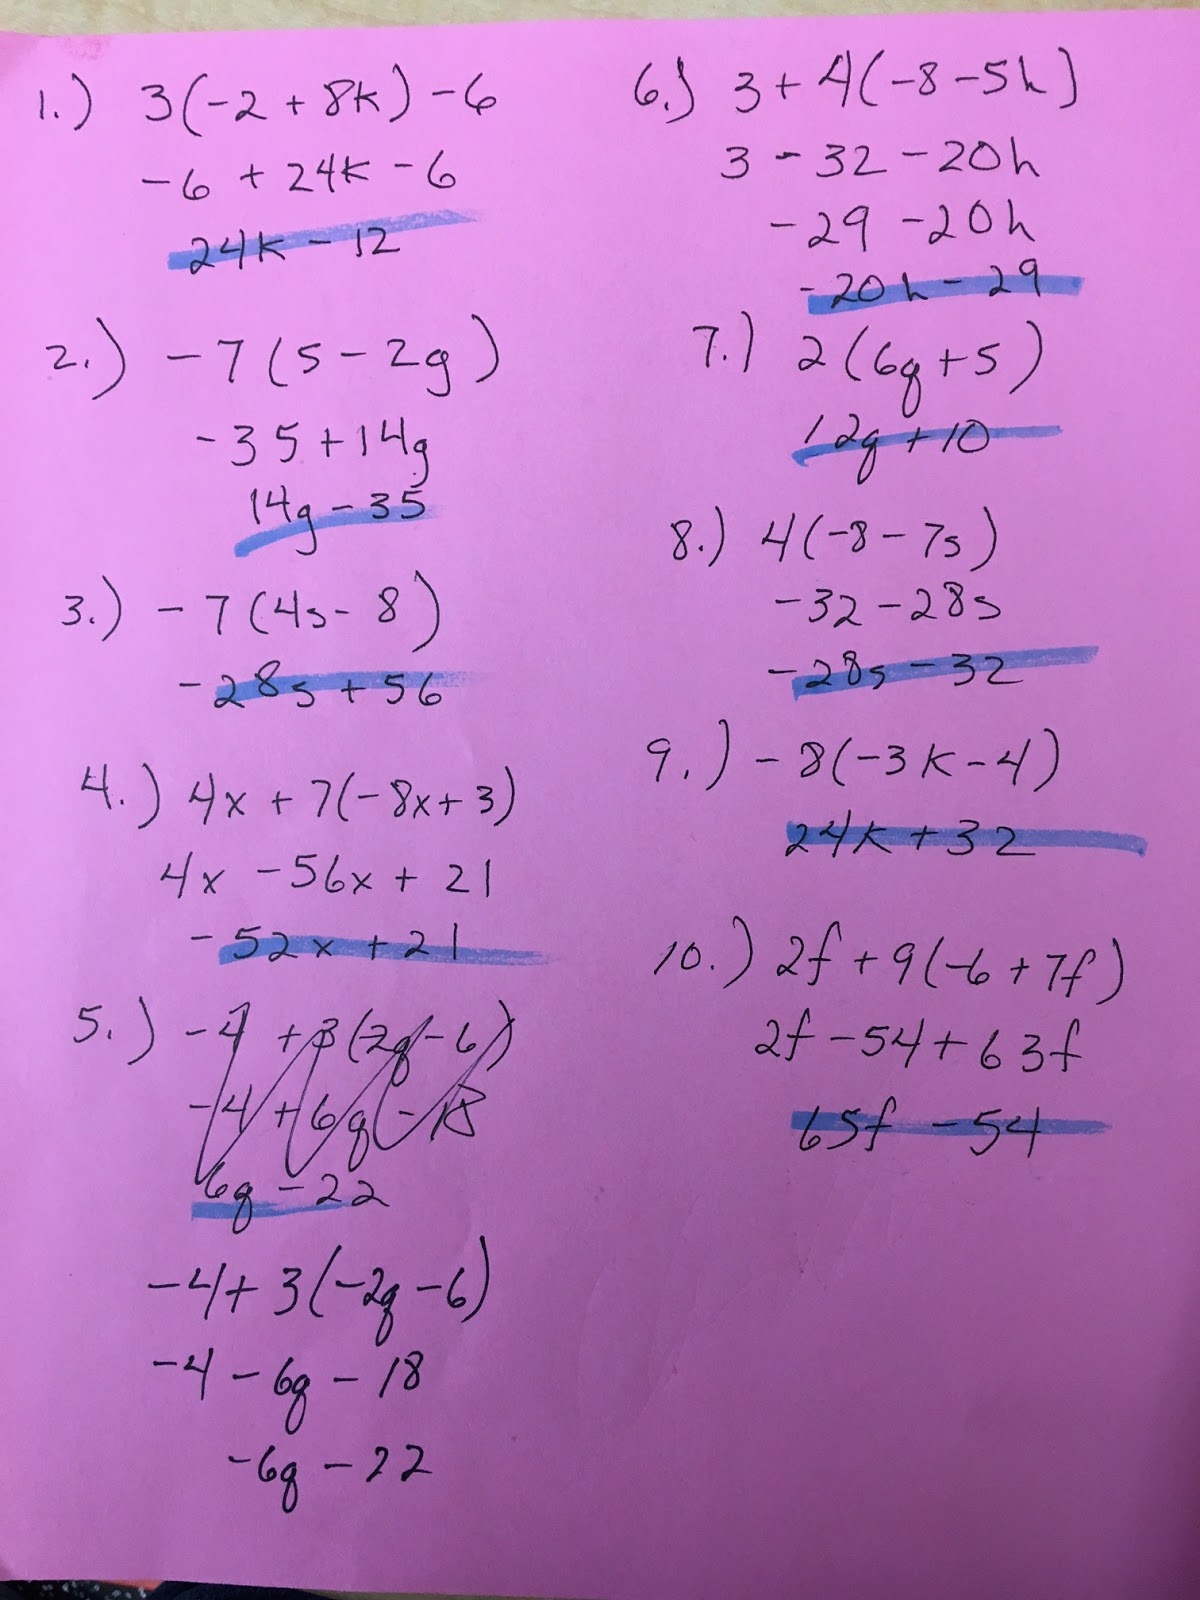 1.) 3(-2 + 8k) - 6
-6 + 24k - 6
24k - 12
2.) -7(5 - 2g)
-35 + 14g
14g - 35
3.) -7(4s - 8)
-28s + 56
4.) 4x + 7(-8x + 3)
4x - 56x + 21
-52x + 21
5.) -4 + 3(2q - 6)
-4 + 6q - 18
6q - 22
-4 + 3(-2q - 6)
-4 - 6q - 18
-6q - 22
6.) 3 + 4(-8 - 5h)
3 - 32 - 20h
-29 - 20h
-20h - 29
7.) 2(6q + 5)
12q + 10
8.) 4(-8 - 7s)
-32 - 28s
-28s - 32
9.) -8(-3k - 4)
24k + 32
10.) 2f + 9(-6 + 7f)
2f - 54 + 63f
65f - 54